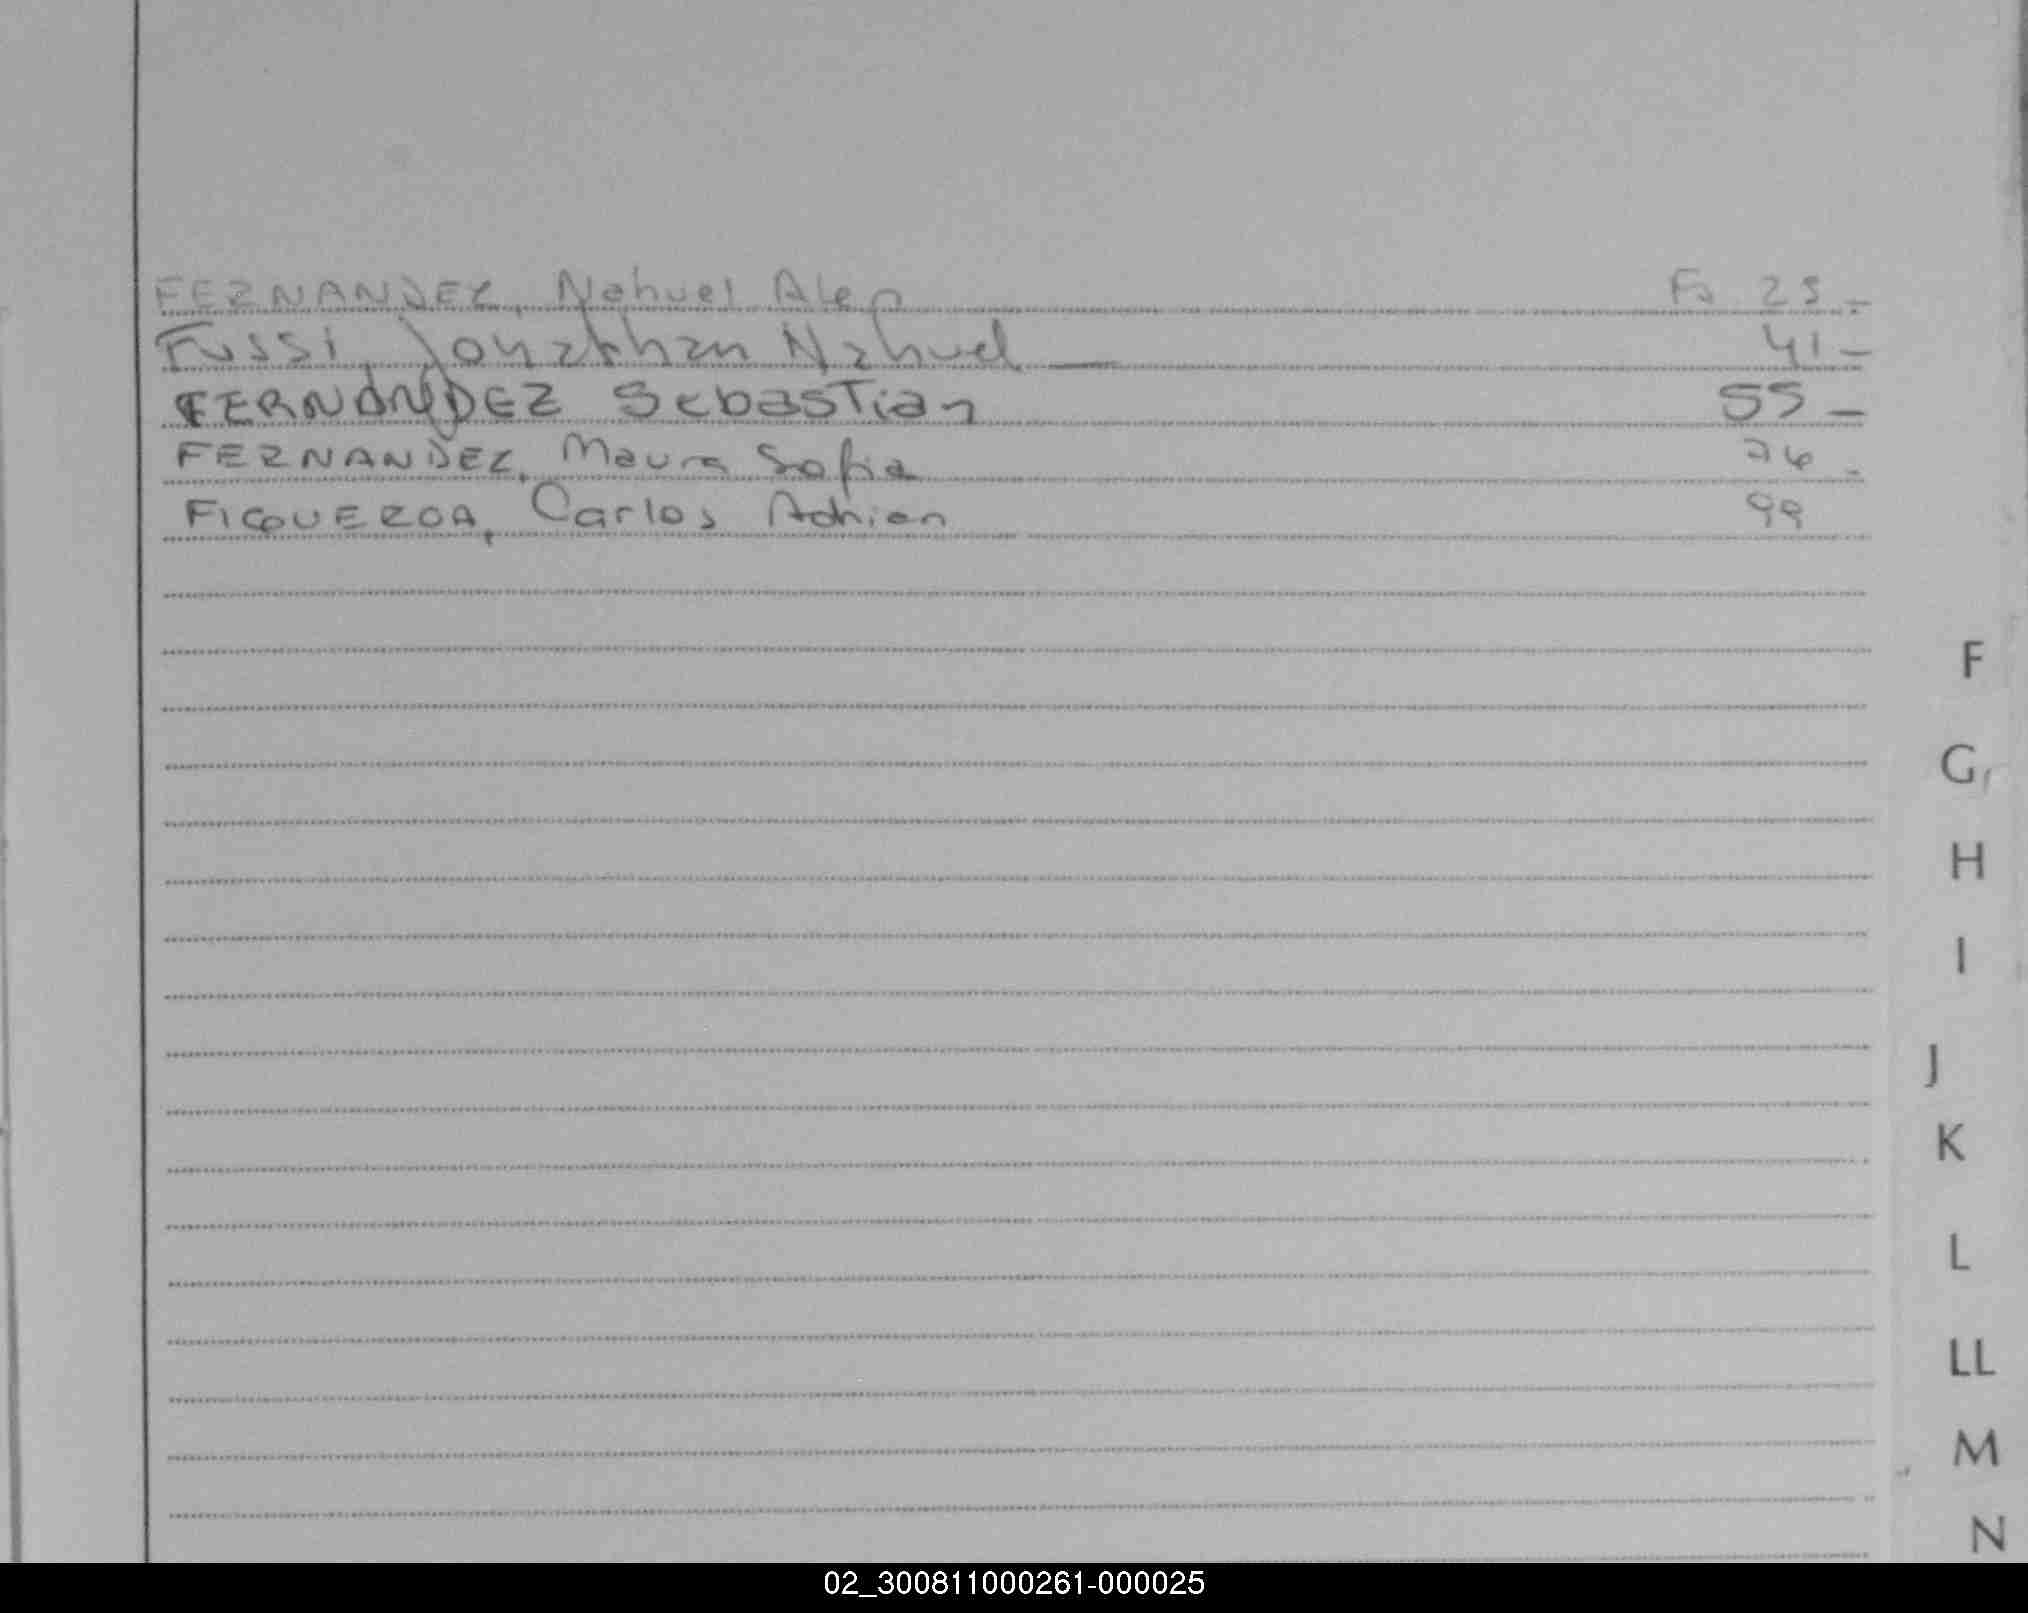 FERNANDEZ, Nahuel Alen Fs 25 -
Fussi, Jonathan Nahuel — 41 -
FERNANDEZ Sebastian 55 -
FERNANDEZ, Maura Sofia 76 -
FIGUEROA, Carlos Adrian 99
F
G
H
I
J
K
L
LL
M
N
02_300811000261-000025